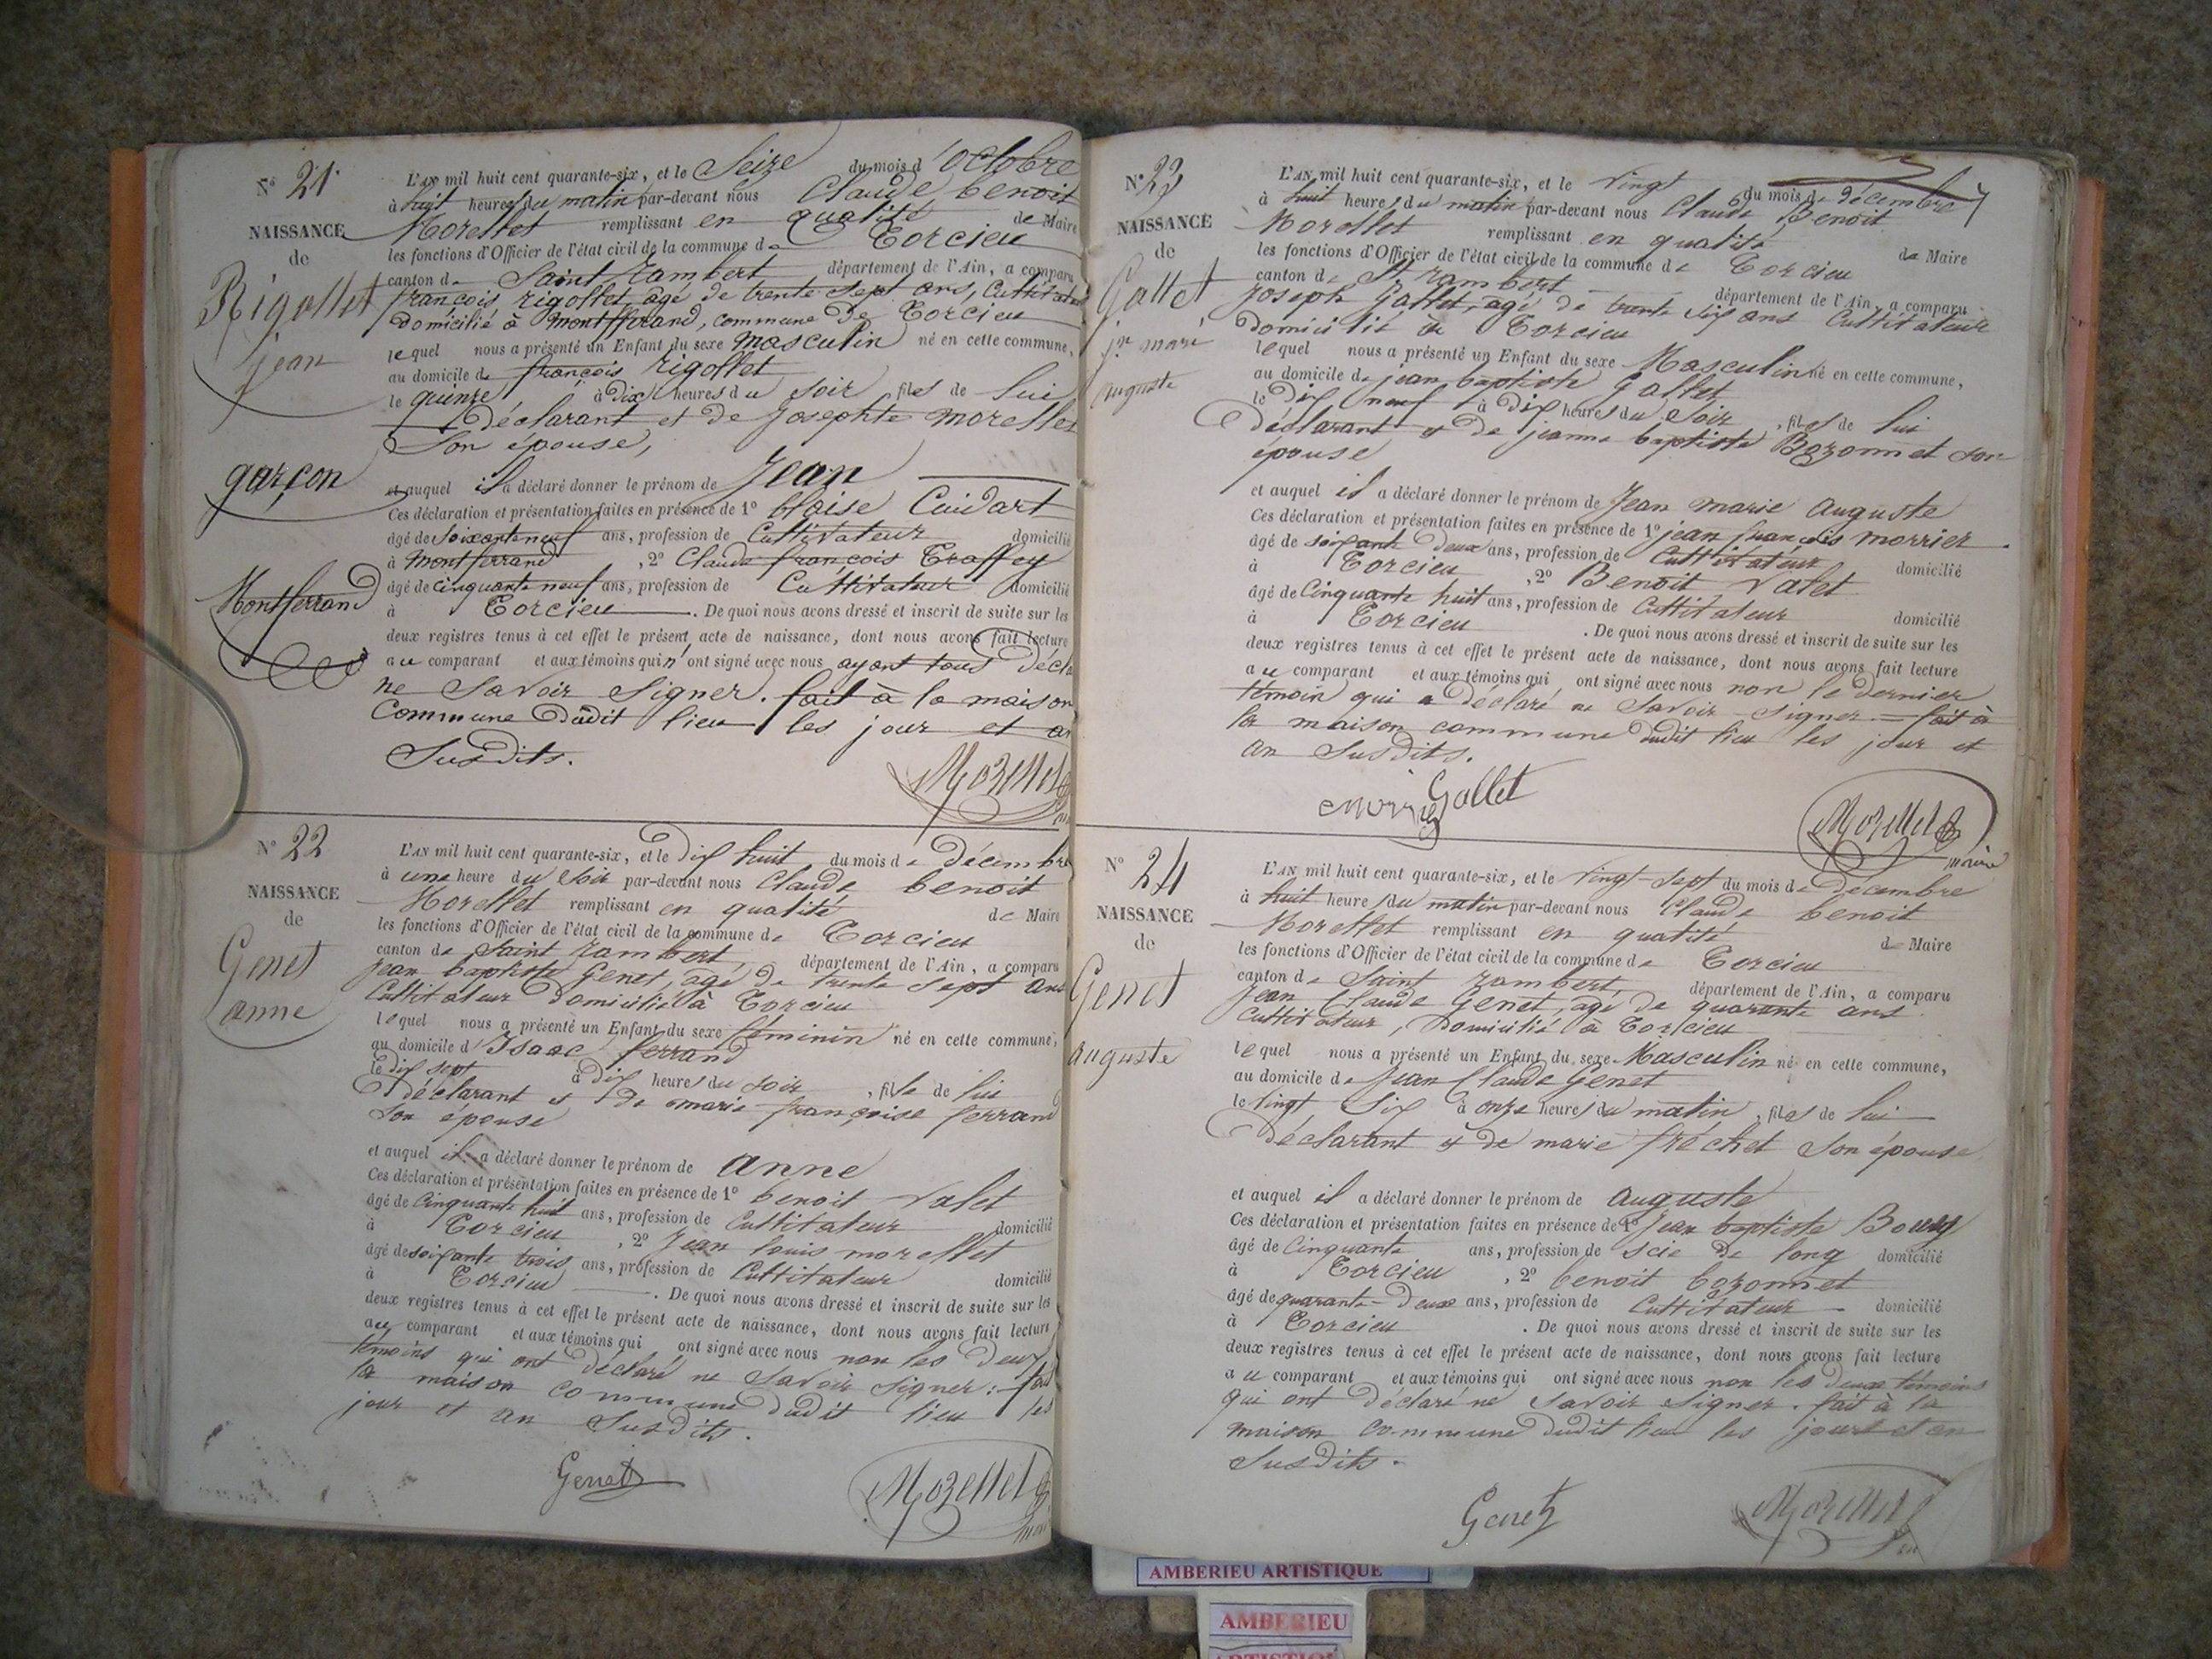 N° 21.
NAISSANCE
de
Rigollet
jean
garçon
Montferrand
L'AN mil huit cent quarante-six, et le Seize du mois d'octobre
à huit heures du matin par-devant nous Claude benoit
Morellet remplissant en qualité de Maire
les fonctions d'Officier de l'état civil de la commune de Torcieu
canton de Saint rambert département de l'Ain, a comparu
françois rigollet, agé de trente sept ans, Cultivateur
Domicilié à montferrand, commune de Torcieu
lequel nous a présenté un Enfant du sexe masculin né en cette commune,
au domicile de françois rigollet
le quinze à dix heures du soir, fils de lui
déclarant et de Josephte morellet
Son épouse,
et auquel il a déclaré donner le prénom de Jean
Ces déclaration et présentation faites en présence de 1° blaise Cuidart
âgé de soixante neuf ans, profession de Cultivateur domicilié
à montferrand, 2° Claude françois Traffey
âgé de cinquante neuf ans, profession de Cultivateur domicilié
à Torcieu. De quoi nous avons dressé et inscrit de suite sur les
deux registres tenus à cet effet le présent acte de naissance, dont nous avons fait lecture
au comparant et aux témoins qui n'ont signé avec nous ayant tous décla
ne Savoir Signer. fait à la maison
Commune dudit lieu les jour et an
Susdits.
Morellet
N° 22
NAISSANCE
de
Genet
anne
L'AN mil huit cent quarante-six, et le dix huit du mois de décembre
à une heure du soir par-devant nous Claude benoit
Morellet remplissant en qualité de Maire
les fonctions d'Officier de l'état civil de la commune de Torcieu
canton de Saint rambert, département de l'Ain, a comparu
jean baptiste Genet, agé de trente sept ans
Cultivateur Domicilié à Torcieu
lequel nous a présenté un Enfant du sexe féminin né en cette commune,
au domicile d'Isaac ferrand
le dix sept à dix heures du soir, fille de lui
déclarant et de marie françoise ferrand
Son épouse
et auquel il a déclaré donner le prénom de anne
Ces déclaration et présentation faites en présence de 1° benoit Valet
âgé de cinquante huit ans, profession de Cultivateur domicilié
à Torcieu, 2° Jean louis morellet
âgé de soixante trois ans, profession de Cultivateur domicilié
à Torcieu. De quoi nous avons dressé et inscrit de suite sur les
deux registres tenus à cet effet le présent acte de naissance, dont nous avons fait lecture
au comparant et aux témoins qui ont signé avec nous non les deux
témoins qui ont déclaré ne Savoir Signer: fait
la maison commune dudit lieu les
jour et an Susdits.
Genet
Morellet
N° 23
NAISSANCE
de
Gallet
jn marie
auguste
L'AN mil huit cent quarante-six, et le vingt du mois de décembre
à huit heures du matin par-devant nous Claude Benoit
Morellet remplissant en qualité de Maire
les fonctions d'Officier de l'état civil de la commune de Torcieu
canton de St rambert département de l'Ain, a comparu
Joseph Gallet, agé de trente six ans Cultivateur
Domicilié à Torcieu
lequel nous a présenté un Enfant du sexe Masculin né en cette commune,
au domicile de jean baptiste Gallet
le dix neuf à dix heures du Soir, fils de lui
Déclarant et de jeanne baptiste Bozonnet son
épouse
et auquel il a déclaré donner le prénom de Jean marie auguste
Ces déclaration et présentation faites en présence de 1° jean françois morrier
âgé de soixante deux ans, profession de Cultivateur domicilié
à Torcieu, 2° Benoit Valet
âgé de Cinquante huit ans, profession de Cultivateur domicilié
à Torcieu. De quoi nous avons dressé et inscrit de suite sur les
deux registres tenus à cet effet le présent acte de naissance, dont nous avons fait lecture
au comparant et aux témoins qui ont signé avec nous non le dernier
témoin qui a déclaré ne Savoir Signer = fait à
la maison commune dudit lieu les jour et
an Susdits.
morrier Gallet
Morellet
maire
N° 24
NAISSANCE
de
Genet
auguste
L'AN mil huit cent quarante-six, et le vingt-sept du mois de décembre
à huit heures du matin par-devant nous Claude benoit
Morellet remplissant en qualité de Maire
les fonctions d'Officier de l'état civil de la commune de Torcieu
canton de Saint rambert, département de l'Ain, a comparu
Jean Claude Genet, agé de quarante ans
Cultivateur, Domicilié à Torcieu
lequel nous a présenté un Enfant du sexe Masculin né en cette commune,
au domicile de Jean Claude Genet
le vingt Six à onze heures du matin, fils de lui
Déclarant et de marie fréchet Son épouse
et auquel il a déclaré donner le prénom de auguste
Ces déclaration et présentation faites en présence de 1° Jean baptiste Bourg
âgé de Cinquante ans, profession de scie de long domicilié
à Torcieu, 2° benoit bozonnet
âgé de quarante-deux ans, profession de Cultivateur domicilié
à Torcieu. De quoi nous avons dressé et inscrit de suite sur les
deux registres tenus à cet effet le présent acte de naissance, dont nous avons fait lecture
au comparant et aux témoins qui ont signé avec nous non les deux témoins
qui ont déclaré ne Savoir Signer. fait à la
maison commune dudit lieu les jours et an
Susdits.
Genet
Morellet
AMBERIEU ARTISTIQUE
AMBERIEU
ARTISTIQUE